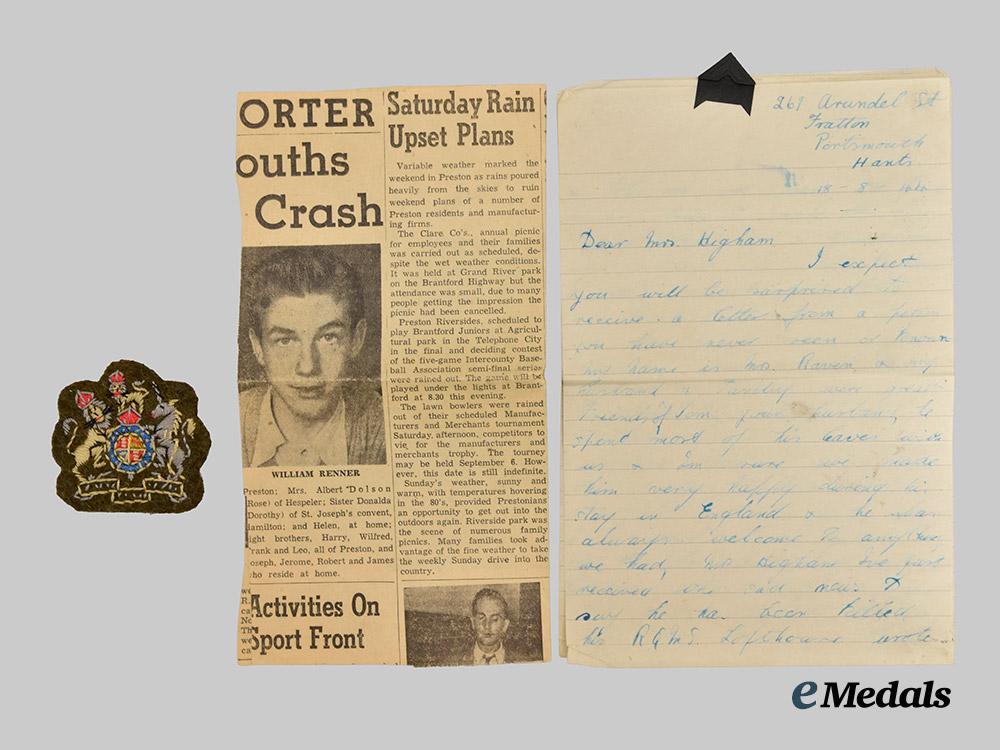 ORTER
ouths
Crash
WILLIAM RENNER
Preston; Mrs. Albert Dolson
(Rose) of Hespeler; Sister Donalda
(Dorothy) of St. Joseph's convent,
Hamilton; and Helen, at home;
ight brothers, Harry, Wilfred,
rank and Leo, all of Preston, and
oseph, Jerome, Robert and James
ho reside at home.
Activities On
Sport Front
Saturday Rain
Upset Plans
Variable weather marked the
weekend in Preston as rains poured
heavily from the skies to ruin
weekend plans of a number of
Preston residents and manufactur-
ing firms.
The Clare Co's., annual picnic
for employees and their families
was carried out as scheduled, de-
spite the wet weather conditions.
It was held at Grand River park
on the Brantford Highway but the
attendance was small, due to many
people getting the impression the
picnic had been cancelled.
Preston Riversides, scheduled to
play Brantford Juniors at Agricul-
tural park in the Telephone City
in the final and deciding contest
of the five-game Intercounty Base-
ball Association semi-final series
were rained out. The game will be
played under the lights at Brant-
ford at 8.30 this evening.
The lawn bowlers were rained
out of their scheduled Manufac-
turers and Merchants tournament
Saturday, afternoon, competitors to
vie for the manufacturers and
merchants trophy. The tourney
may be held September 6. How-
ever, this date is still indefinite.
Sunday's weather, sunny and
warm, with temperatures hovering
in the 80's, provided Prestonians
an opportunity to get out into the
outdoors again. Riverside park was
the scene of numerous family
picnics. Many families took ad-
vantage of the fine weather to take
the weekly Sunday drive into the
country.
269 Arundel St
Fratton
Portsmouth
Hants
18 - 8 - 
Dear Mrs. Higham
I expect
you will be surprised to
receive a letter from a person
you have never seen or known
my name is Mrs. Raven, & my
Husband & Family were great
Friends of Jem your husband, he
spent most of his leaves with
us & I'm sure we made
him very happy during his
stay in England & he was
always welcome to anything
we had, Mrs Higham I've just
received sad news &
say he has been killed
his R.Q.M.S. Lofthouse wrote
eMedals